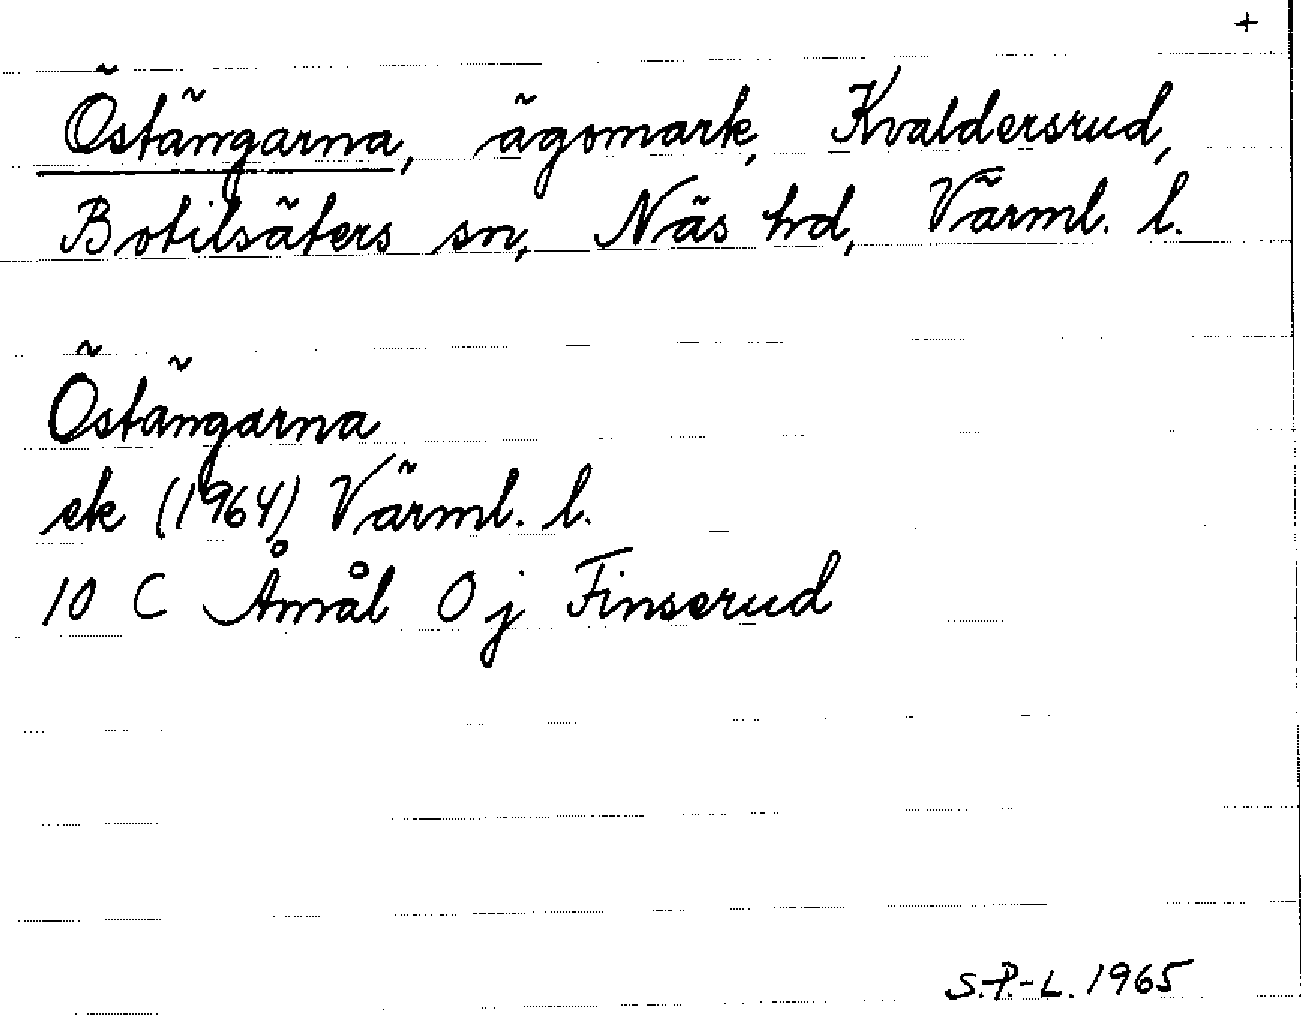 +
Östängarna, ägomark, Kvaldersrud,
Botilsäters sn, Näs hd, Värml. l.
Östängarna
ek (1964) Värml. l.
10 C Åmål 0 j Finserud
S.P-L. 1965